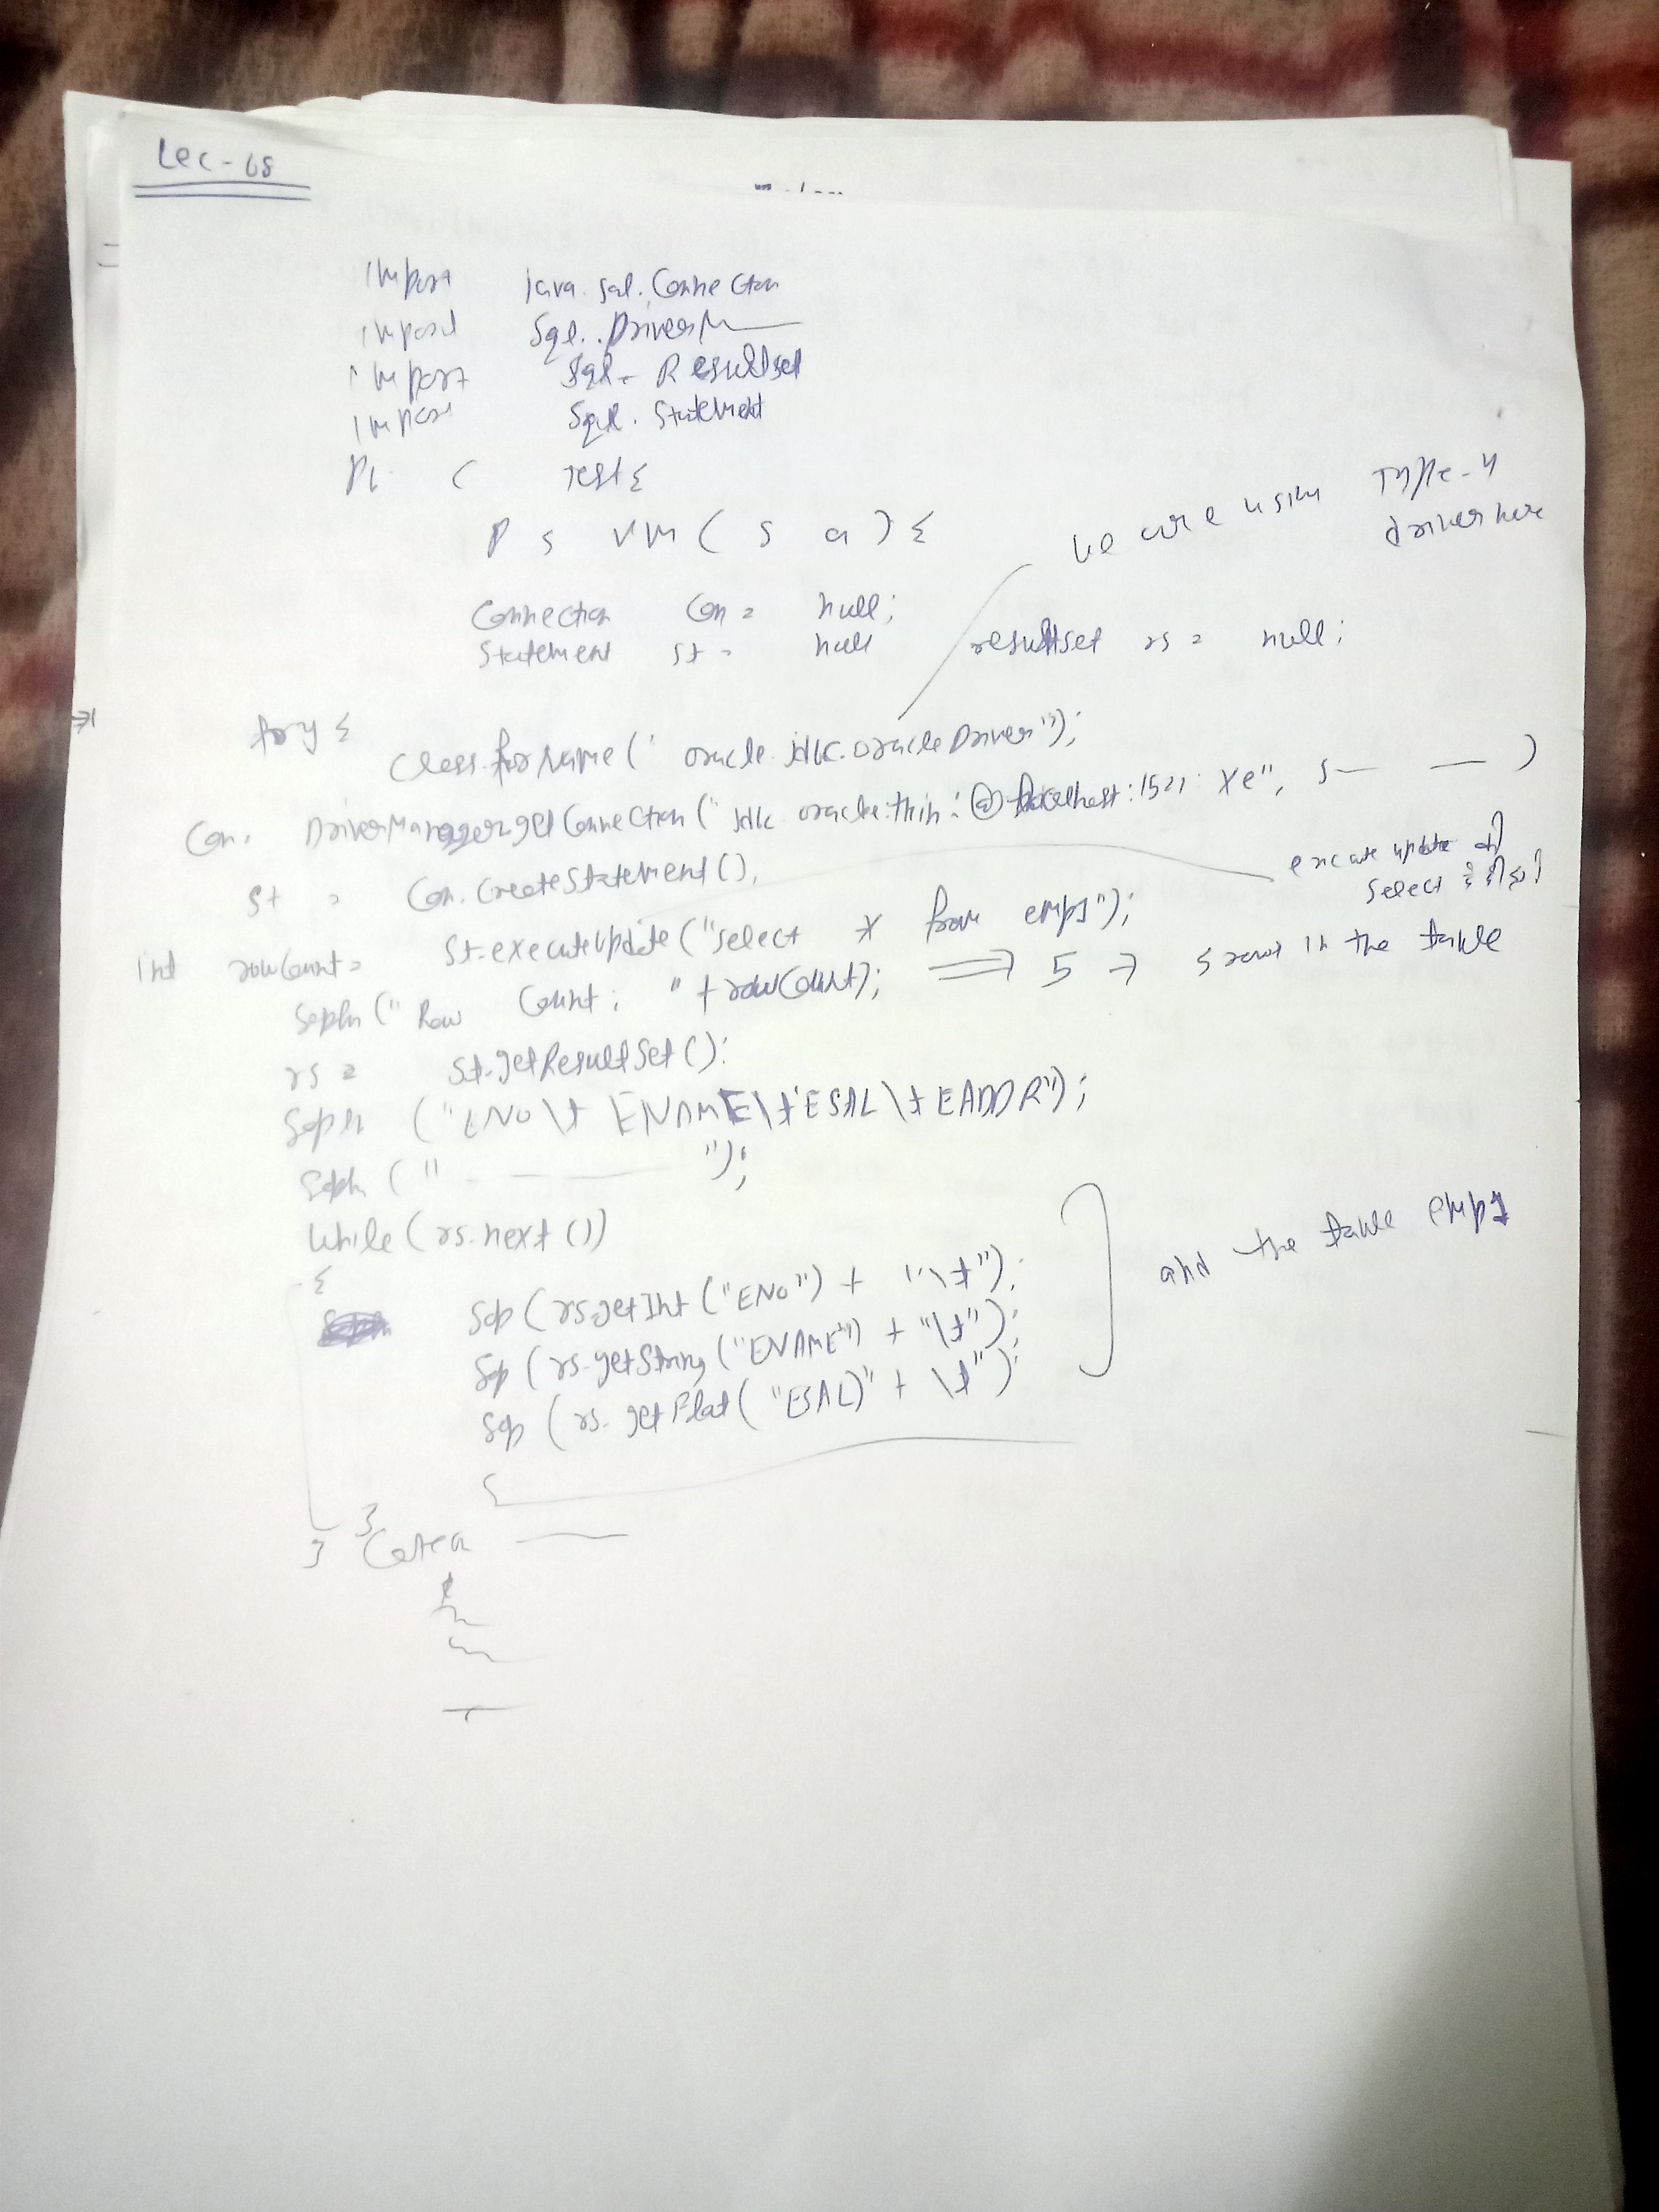 Lec-68
import java.sql.Connection
import sql..DriverM
import sql. Resultset
import sql. Statement
C Test{
P s vm ( s a ) {
we are using Type-4
driver here
Connection Con = null;
Statement st = null resultset rs = null;
try {
Class.forName(' oracle.jdbc.oracleDriver");
Con. DriverManager.getConnection(" jdbc oracle:thin:@localhost:1521: xe", s— — )
st = Con.CreateStatement(),
execute update
select
int rowCount= St.executeUpdate("select * from emps1");
Sopln (" Row Count: " + rowCount); ⟹ 5 → 5 rows in the table
rs = St.getResultSet():
Sopln ("ENO\t ENAME\t ESAL\t EADDR");
Sopln (" - — — ");
while (rs.next())
{
Sop (rs.getInt ("ENO") + "\t");
and the table emps1
Sop (rs.getString ("ENAME") + "\t");
Sop (rs.getFloat( "ESAL)" + \t");
}
}